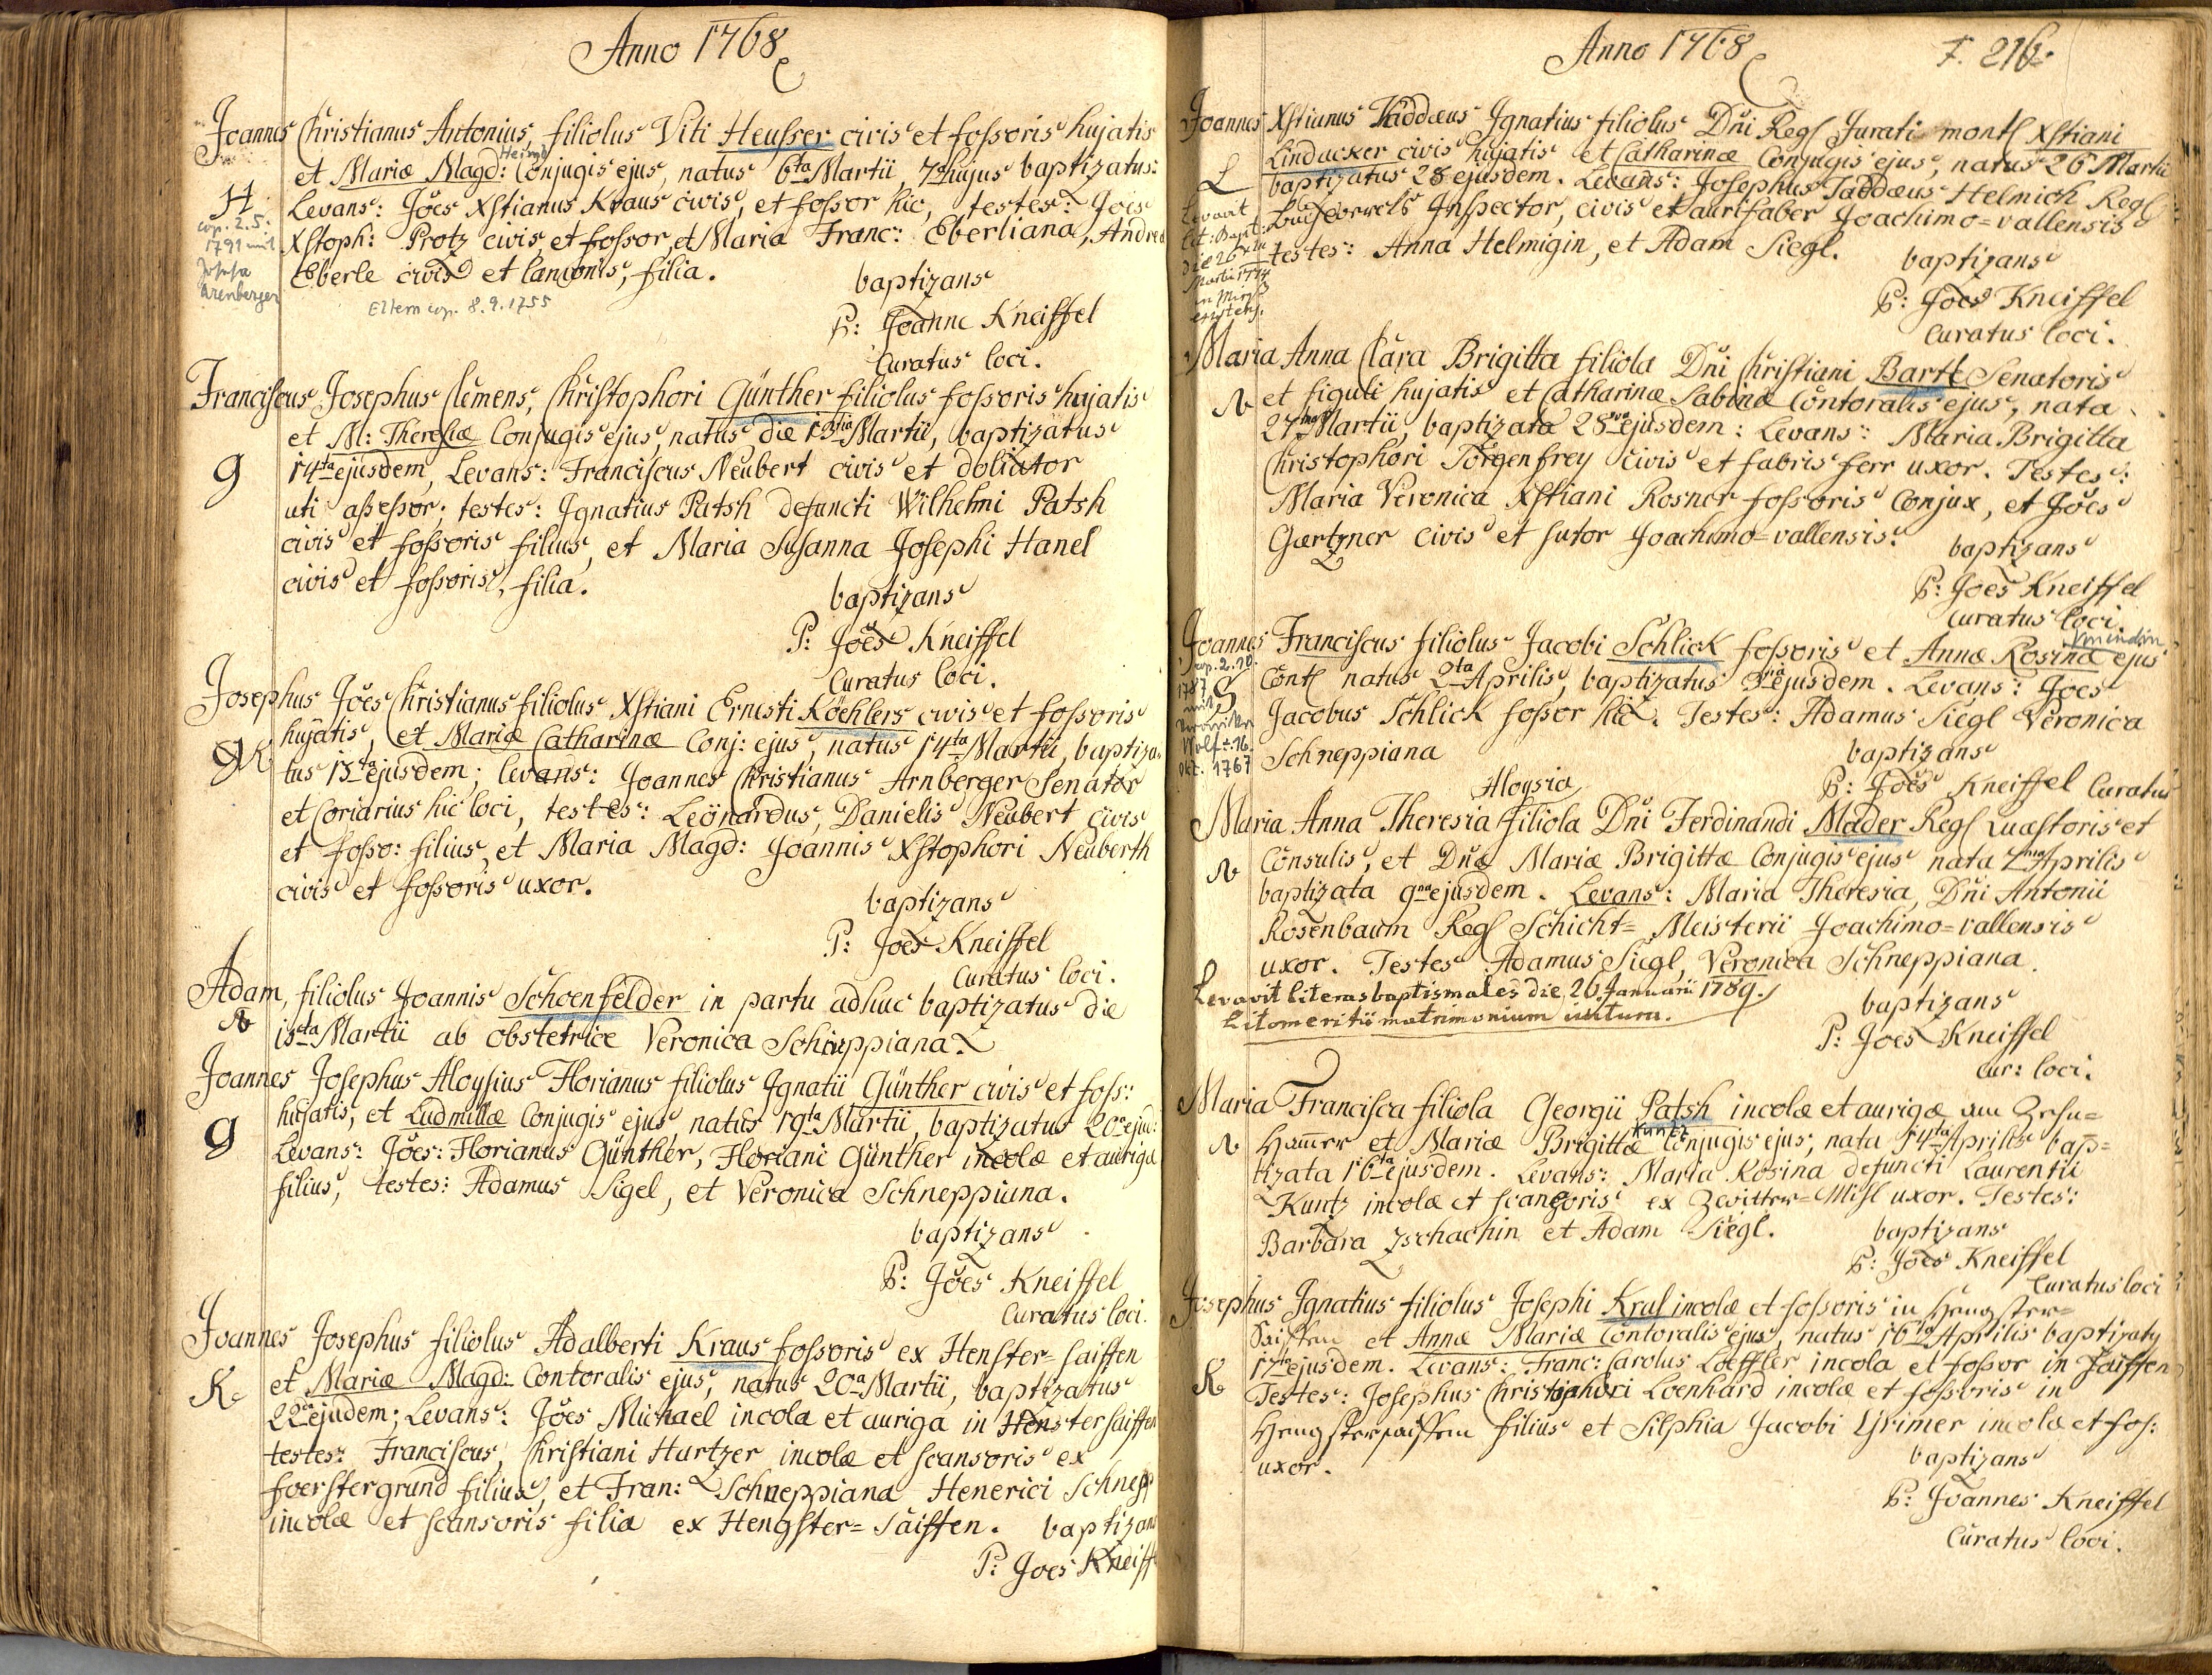 Anno 1768
Joannes Christianus Antonius, filiolus Viti Heusser civis et fossoris hujatis
Heimb
et Mariæ Magd: Conjugis ejus, natus 6ta Martii, 7 hujus baptizatus:
H
Levans: Jões Xstianus Kraus civis, et fossor hic, testes: Jois
cop. 2.5.
1791 mit
Xstoph: Protz civis et fossor, et Maria Franc: Eberliana, Andreæ
Josefa
Arenberger
Eberle civis et lanionis, filia.
Eltern cop. 8.9.1755
baptizans
P: Joanne Kneissel
Curatus loci.
Franciscus Josephus Clemens, Christophori Günther filiolus fossoris hujatis
et M: Theresiæ Conjugis ejus, natus die 13tia Martii, baptizatus
g
14ta ejusdem, Levans: Franciscus Neubert civis et doliator
uti assessor; testes: Ignatius Patsh defuncti Wilhelmi Patsh
civis et fossoris filius, et Maria Susanna Josephi Hanel
civis et fossoris, filia.
baptizans
P: Jões Kneissel
Curatus loci.
Josephus Jões Christianus filiolus Xstiani Ernesti Köehlers civis et fossoris
hujatis, et Mariæ Catharinæ Conj: ejus, natus 14ta Martii, baptiza
K
tus 15ta ejusdem; levans: Joannes Christianus Arnberger Senator
et Coriarius hic loci, testes: Leonardus, Danielis Neubert civis
et fosso: filius, et Maria Magd: Joannis Xstophori Neuberth
civis et fossoris uxor.
baptizans
P: Joes Kneissel
Curatus loci.
Adam, filiolus Joannis Schoenfelder in partu adhuc baptizatus die
15ta Martii ab obstetrice Veronica Schneppiana.
Joannes Josephus Aloysius Florianus filiolus Ignatii Günther civis et foss:
hujatis, et Ludmillæ Conjugis ejus natus 19ta Martii, baptizatus 20a ejusd:
g
Levans: Jões: Florianus Günther, Floriani Günther incolæ et aurigæ
filius, testes: Adamus Sigel, et Veronica Schneppiana.
baptizans
P: Jões Kneissel
Curatus loci.
Joannes Josephus filiolus Adalberti Kraus fossoris ex Henster=saiffen
et Mariæ Magd: Contoralis ejus, natus 20a Martii, baptizatus
K
22a ejudem; Levans: Jões Michael incola et auriga in Henstersaiffen
testes: Franciscus, Christiani Hartzer incolæ et scansoris ex
foerstergrund filius, et Fran: Schneppiana Henerici Schnepp
incolæ et scansoris filia ex Hengster=Saiffen. baptizans
P: Joes Kneiss
Anno 1768
F. 216.
Joannes Xstianus Taddæus Ignatius filiolus Dñi Regl Jurati montl Xstiani
Lindacker civis hujatis et Catharinæ Conjugis ejus, natus 26 Martii
L
baptizatus 28 ejusdem. Levans: Josephus Taddæus Helmich Regl
Levavit
lit: Bapt:
Inspector, civis et aurifaber Joachimo=vallensis
die 26
testes: Anna Helmigin, et Adam Siegl.
Martii
baptizans
P: Joes Kneiffel
Curatus loci.
Maria Anna Clara Brigitta filiola Dñi Christiani Bartl Senatoris
et figuli hujatis et Catharinæ Sabinæ Contoralis ejus, nata
27ma Martii, baptizata 28va ejusdem: Levans: Maria Brigitta
Christophori Törgenfrey civis et fabris ferr uxor. Testes:
Maria Veronica Xstiani Rosner fossoris Conjux, et Jões
Gærtzner civis et sutor Joachimo=vallensis.
baptizans
P: Joes Kneiffel
Curatus loci.
Joannes Franciscus filiolus Jacobi Schlick fossoris et Annæ Rosinæ ejus
cop. 2.10.
1787
S
Contl natus 2ta Aprilis, baptizatus 3tia ejusdem. Levans: Joes
mit
Jacobus Schlick fossor hic. Testes: Adamus Siegl Veronica
Veronika
Wolf *16.
Okt. 1767
Schneppiana
baptizans
P: Jões Kneiffel Curatus
Aloysia
Maria Anna Theresia filiola Dñi Ferdinandi Mader Regl Quæstoris et
Consulis, et Dñæ Mariæ Brigittæ Conjugis ejus nata 7ma Aprilis
baptizata 9na ejusdem. Levans: Maria Theresia, Dñi Antonii
Rosenbaum Regl Schicht=Meisterii Joachimo=vallensis
uxor. Testes Adamus Siegl, Veronica Schneppiana.
Levavit literas baptismales die 26. Januarii 1789.
Litomeritii matrimonium initura.
baptizans
P: Joes Kneissel
cur: loci.
Maria Francisca filiola Georgii Patsh incolæ et aurigæ am
Kuntz
Hamer et Mariæ Brigittæ Conjugis ejus, nata 14ta Aprilis bap=
tizata 16ta ejusdem. Levans: Maria Rosina defuncti Laurentii
Kuntz incolæ et scansoris ex Zwitter=Mihl uxor. Testes:
Barbara Zschachin et Adam Siegl.
baptizans
P: Joes Kneiffel
Curatus loci
Josephus Ignatius filiolus Josephi Kral incolæ et fossoris in Hengster=
Saiffen et Annæ Mariæ Contoralis ejus, natus 16ta Aprilis baptizaty
17ma ejusdem. Levans: Franc: Carolus Loeffler incola et fossor in Saiffen
K
Testes: Josephus Christophori Loenhard incolæ et fossoris in
Hengstersaiffen filius et Silphia Jacobi Grimer incolæ et fos:
uxor.
baptizans
P: Joannes Kneiffel
Curatus loci.